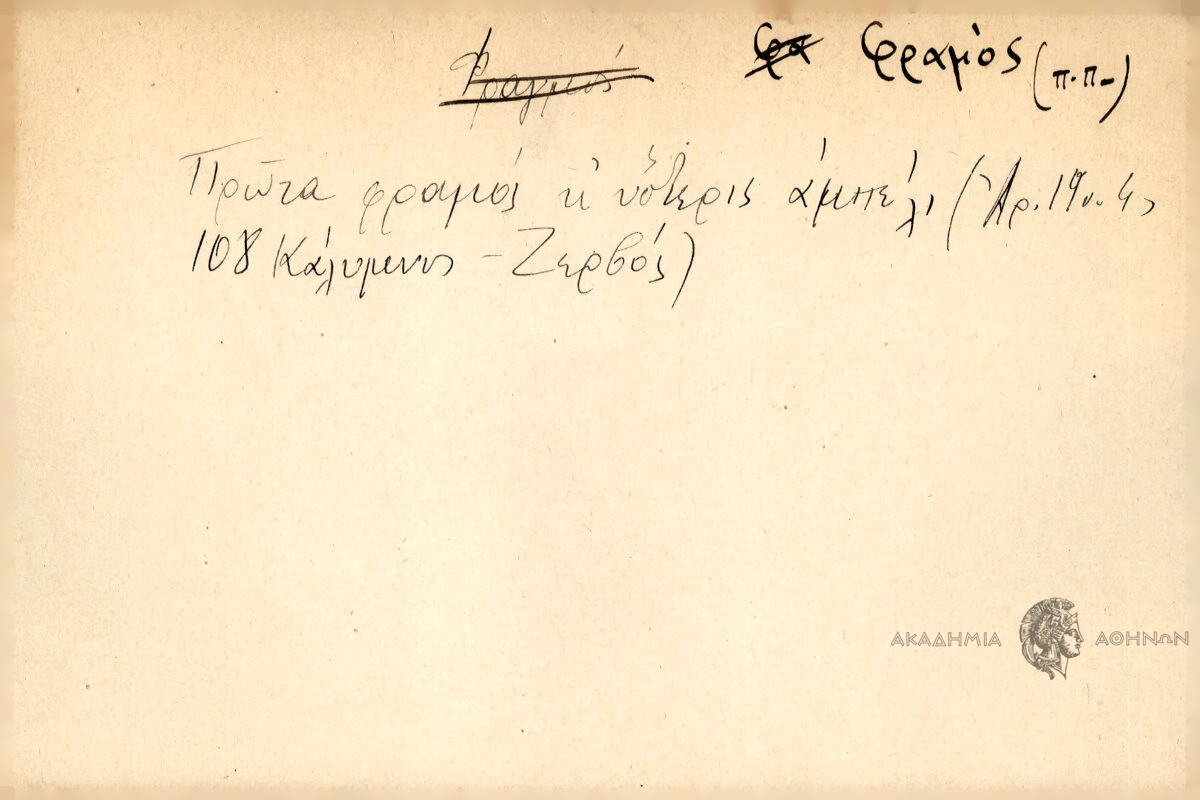 Φραγμός φρα φραμὸς (π.π.)
Πρῶτα φραμός κ' ὕστερις ἀμπέλι (Ἀρ. 19
108 Κάλυμνος - Ζερβός)
ΑΚΑΔΗΜΙΑ ΑΘΗΝΩΝ